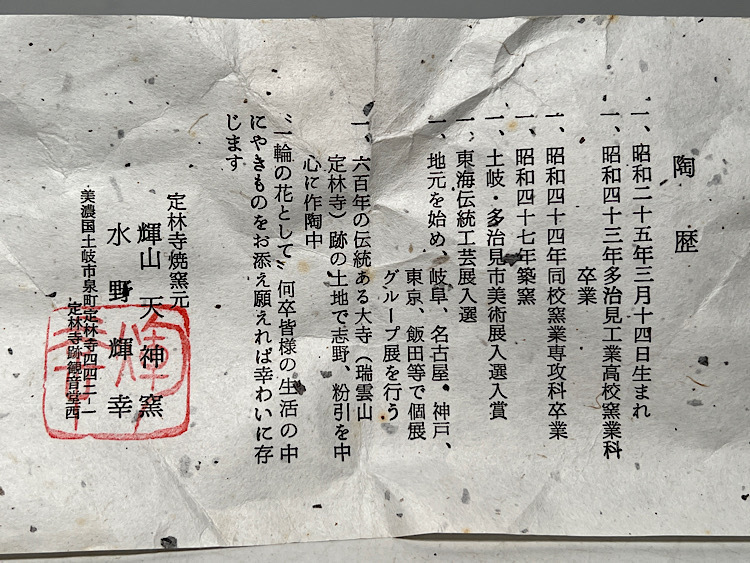 陶歴
一、昭和二十五年三月十四日生まれ
一、昭和四十三年多治見工業高校窯業科
卒業
一、昭和四十四年同校窯業専攻科卒業
一、昭和四十七年築窯
一、土岐・多治見市美術展入選入賞
一、東海伝統工芸展入選
一、地元を始め、岐阜、名古屋、神戸、
東京、飯田等で個展
グループ展を行う
一、六百年の伝統ある大寺(瑞雲山
定林寺)跡の土地で志野、粉引を中
心に作陶中
〝一輪の花として〟何卒皆様の生活の中
にやきものをお添え願えれば幸わいに存
じます
定林寺焼窯元
輝山天神窯
水野輝幸
美濃国土岐市泉町定林寺四四二ー一
定林寺跡観音堂西